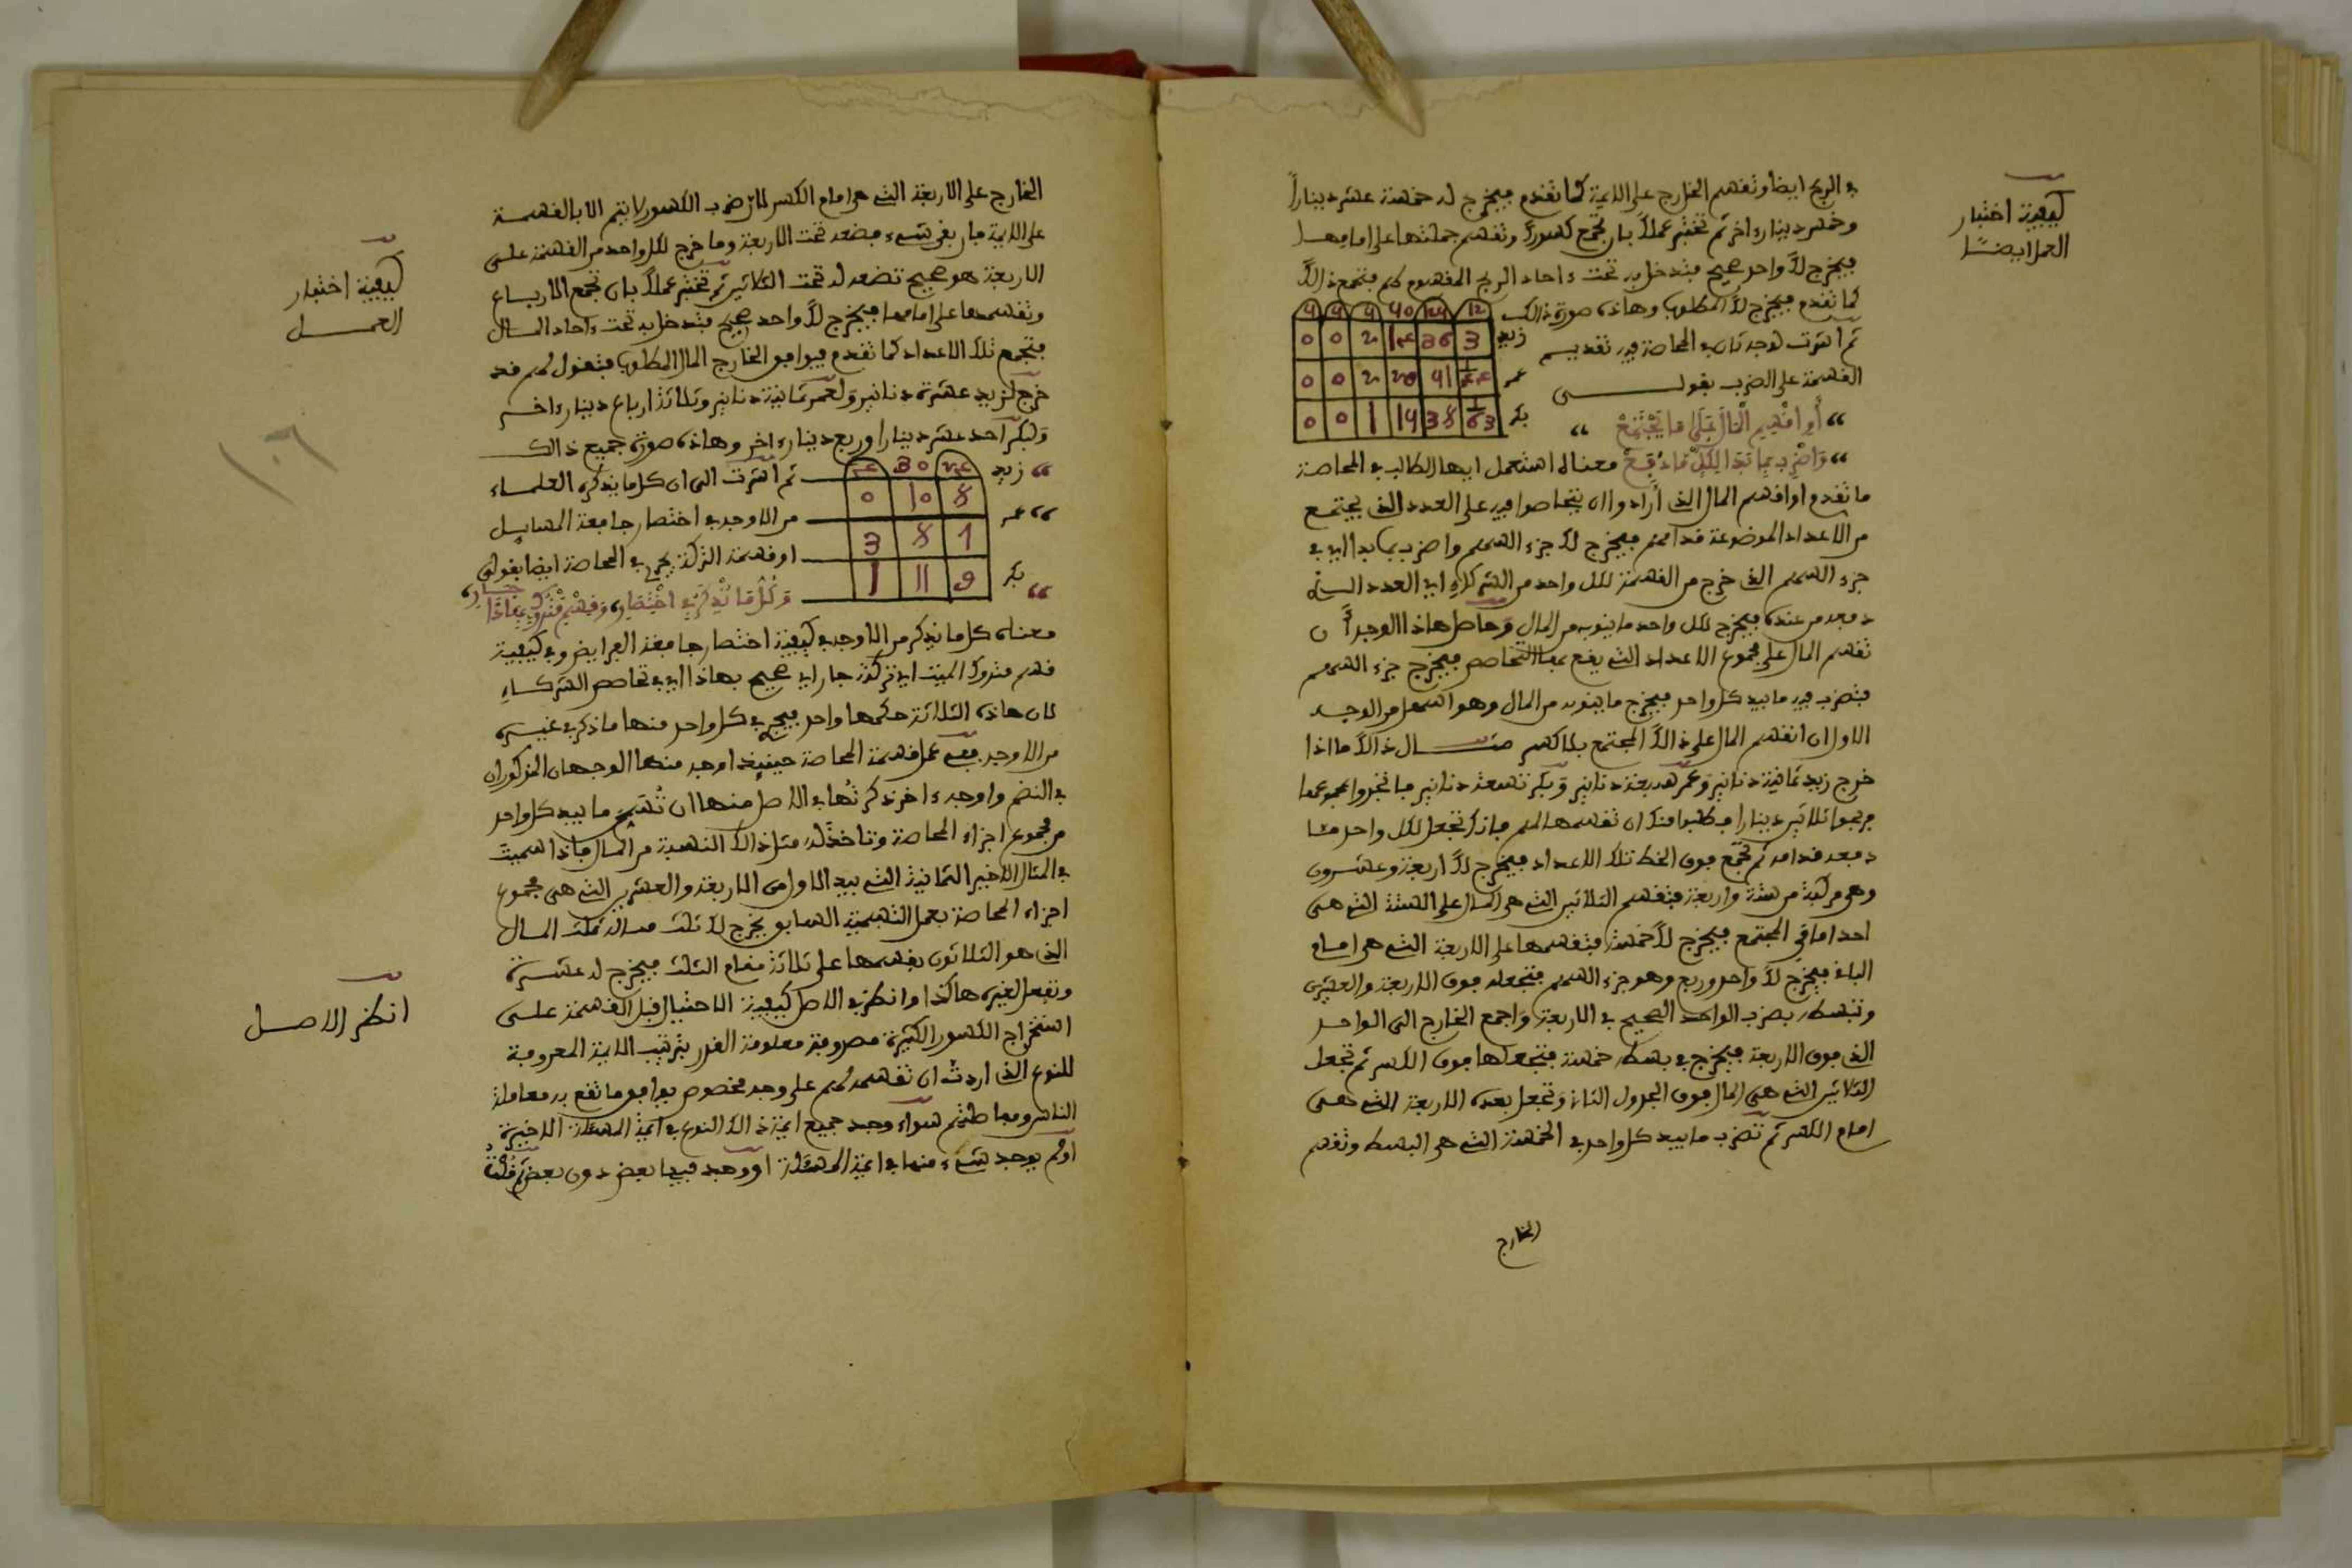 في الربح ايضا وتقسم الخارج على الايمة كما تقدم فيخرج له خمسة عشر دينارا
وخمس دينار ءاخر ثم تختبر عملك بان تجمع كسورك وتقسم جملتها على امامها
فيخرج لك واحد صحيح فتدخل به تحت ءاحاد الربح المقسوم لهم فتجمع ذالك
كما تقدم فيخرج لك المطلوب وهاذه صورة ذالك
ثم اشرت لوجه ثان في المحاصة فيه تقديم
القسمة على الضرب بقولي
كيفية اختبار
العمل ايضا
زيد
عمر
بكر
أو اقسم المال على ما يجتمع
واضرب بما بدا لكل ما دفع معناه استعمل ايها الطالب في المحاصة
ما تقدم او اقسم المال الذي أرادوا ان يتحاصوا فيه على العدد الذي يجتمع
من الاعداد الموضوعة قدامهم فيخرج لك جزء السهم واضرب بما بدا اي في
جزء السهم الذي خرج من القسمة لكل واحد من الشركاء اي العدد الذي
دفعه من عنده فيخرج لكل واحد ما ينوبه من المال وحاصل هاذا الوجه أن
تقسم المال على مجموع الاعداد التي يقع بها التحاصص فيخرج جزء السهم
فتضرب فيه ما بيد كل واحد فيخرج ما ينوبه من المال وهو اسهل من الوجه
الاول ان انقسم المال على ذالك المجتمع بلا كسر مثال ذالك ما اذا
خرج زيد ثمانية دنانير وعمر سبعة دنانير وبكر تسعة دنانير فاتجروا بمجموعها
فربحوا ثلاثين دينارا فطلبوا منك ان تقسمها لهم فانك تجعل لكل واحد ما
دفعه قدامه ثم تجمع فوق الخط تلك الاعداد فيخرج لك اربعة وعشرون
وهي مركبة من ستة واربعة فتقسم الثلاثين التي هي المال على الستة التي هي
احد امامي المجتمع فيخرج لك خمسة فتقسمها على الاربعة التي هي امام
الباقي فيخرج لك واحد وربع وهو جزء السهم فتجعله فوق الاربعة والعشرين
وتبسطه بضرب الواحد الصحيح في الاربعة واجمع الخارج الى الواحد
الذي فوق الاربعة فيخرج في بسطه خمسة فتجعلها فوق الكسر ثم تجعل
الثلاثين التي هي المال فوق الجدول الثاني وتجعل بعده الاربعة التي هي
امام الكسر ثم تضرب ما بيد كل واحد في الخمسة التي هي البسط وتقسم
الخارج
الخارج على الاربعة التي هي امام الكسر لان ضرب الكسور لا يتم الا بالقسمة
على الايمة فان بقي شيء فضعه تحت الاربعة وما خرج لكل واحد من القسمة على
الاربعة هو صحيح تضعه له تحت الثلاثين ثم تختبر عملك بان تجمع الارباع
وتقسمها على امامها فيخرج لك واحد صحيح فتدخل به تحت ءاحاد المال
فتجمع تلك الاعداد كما تقدم فيوافق الخارج المال المطلوب فتقول لهم قد
خرج لزيد عشرة دنانير ولعمر ثمانية دنانير وثلاثة ارباع دينار ءاخر
ولبكر احد عشر دينارا وربع دينار ءاخر وهاذه صورة جميع ذالك
كيفية اختبار
العمل
زيد
عمر
بكر
8 10 0
7 8 3
9 11 1
ثم اشرت الى ان كل ما يذكره العلماء
من الاوجه في اختصار جامعة المسايل
او قسمة التركة يجري في المحاصة ايضا بقولي
وكل ما يذكر في اختصار وقسم متروك بهاذا جار
معناه كل ما يذكر من الاوجه في كيفية اختصار جامعة الفرايض وفي كيفية
قسم متروك الميت اي تركته جار اي صحيح بهاذا اي في تحاصص الشركاء
لان هاذه الثلاثة حكمها واحد فيجري في كل واحد منها ما ذكر في غيره
من الاوجه ففي عمل قسمة المحاصة حينيذ اوجه منها الوجهان المذكوران
في النظم واوجه ءاخر ذكرتها في الاصل منها ان تسمي ما بيد كل واحد
من مجموع اجزاء المحاصة وتاخذ له مثل ذالك النسبة من المال فاذا سميت
في المثال الاخير الثمانية التي بيد الاول من الاربعة والعشرين التي هي مجموع
اجزاء المحاصة بعمل التسمية السابق يخرج لك ثلث فله ثلث المال
الذي هو الثلاثون بقسمها على ثلاثة مقام الثلث فيخرج له عشرة
وتفعل لغيره هاكذا وانظر في الاصل كيفية الاحتيال قبل القسمة على
استخراج الكسور الكثيرة مصروفة معلومة القدر بترتيب الايمة المعروفة
للنوع الذي اردت ان تقسمه لهم على وجه مخصوص يوافق ما تقع به معاملة
الناس ومخاطبتهم سواء وجد جميع ايمة ذالك النوع في ايمة المسئلة الاخيرة
او لم يوجد شيء منها في ايمة المسئلة او وجد فيها بعض دون بعض ثم قلت
انظر الاصل
١٠٦